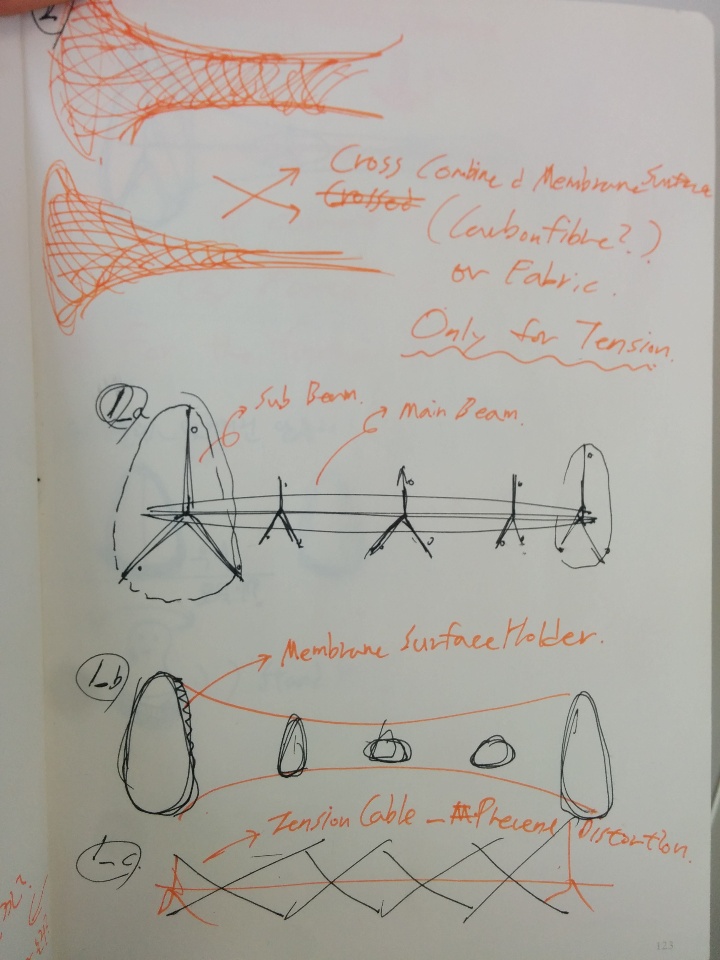 2
Cross Combined Membrane Surface
Crossed
(Carbonfibre?)
or Fabric.
Only for Tension.
1_a
Sub Beam.
Main Beam.
Membrane Surface Holder.
1_b
Tension Cable - Prevent Distortion.
1_c
123